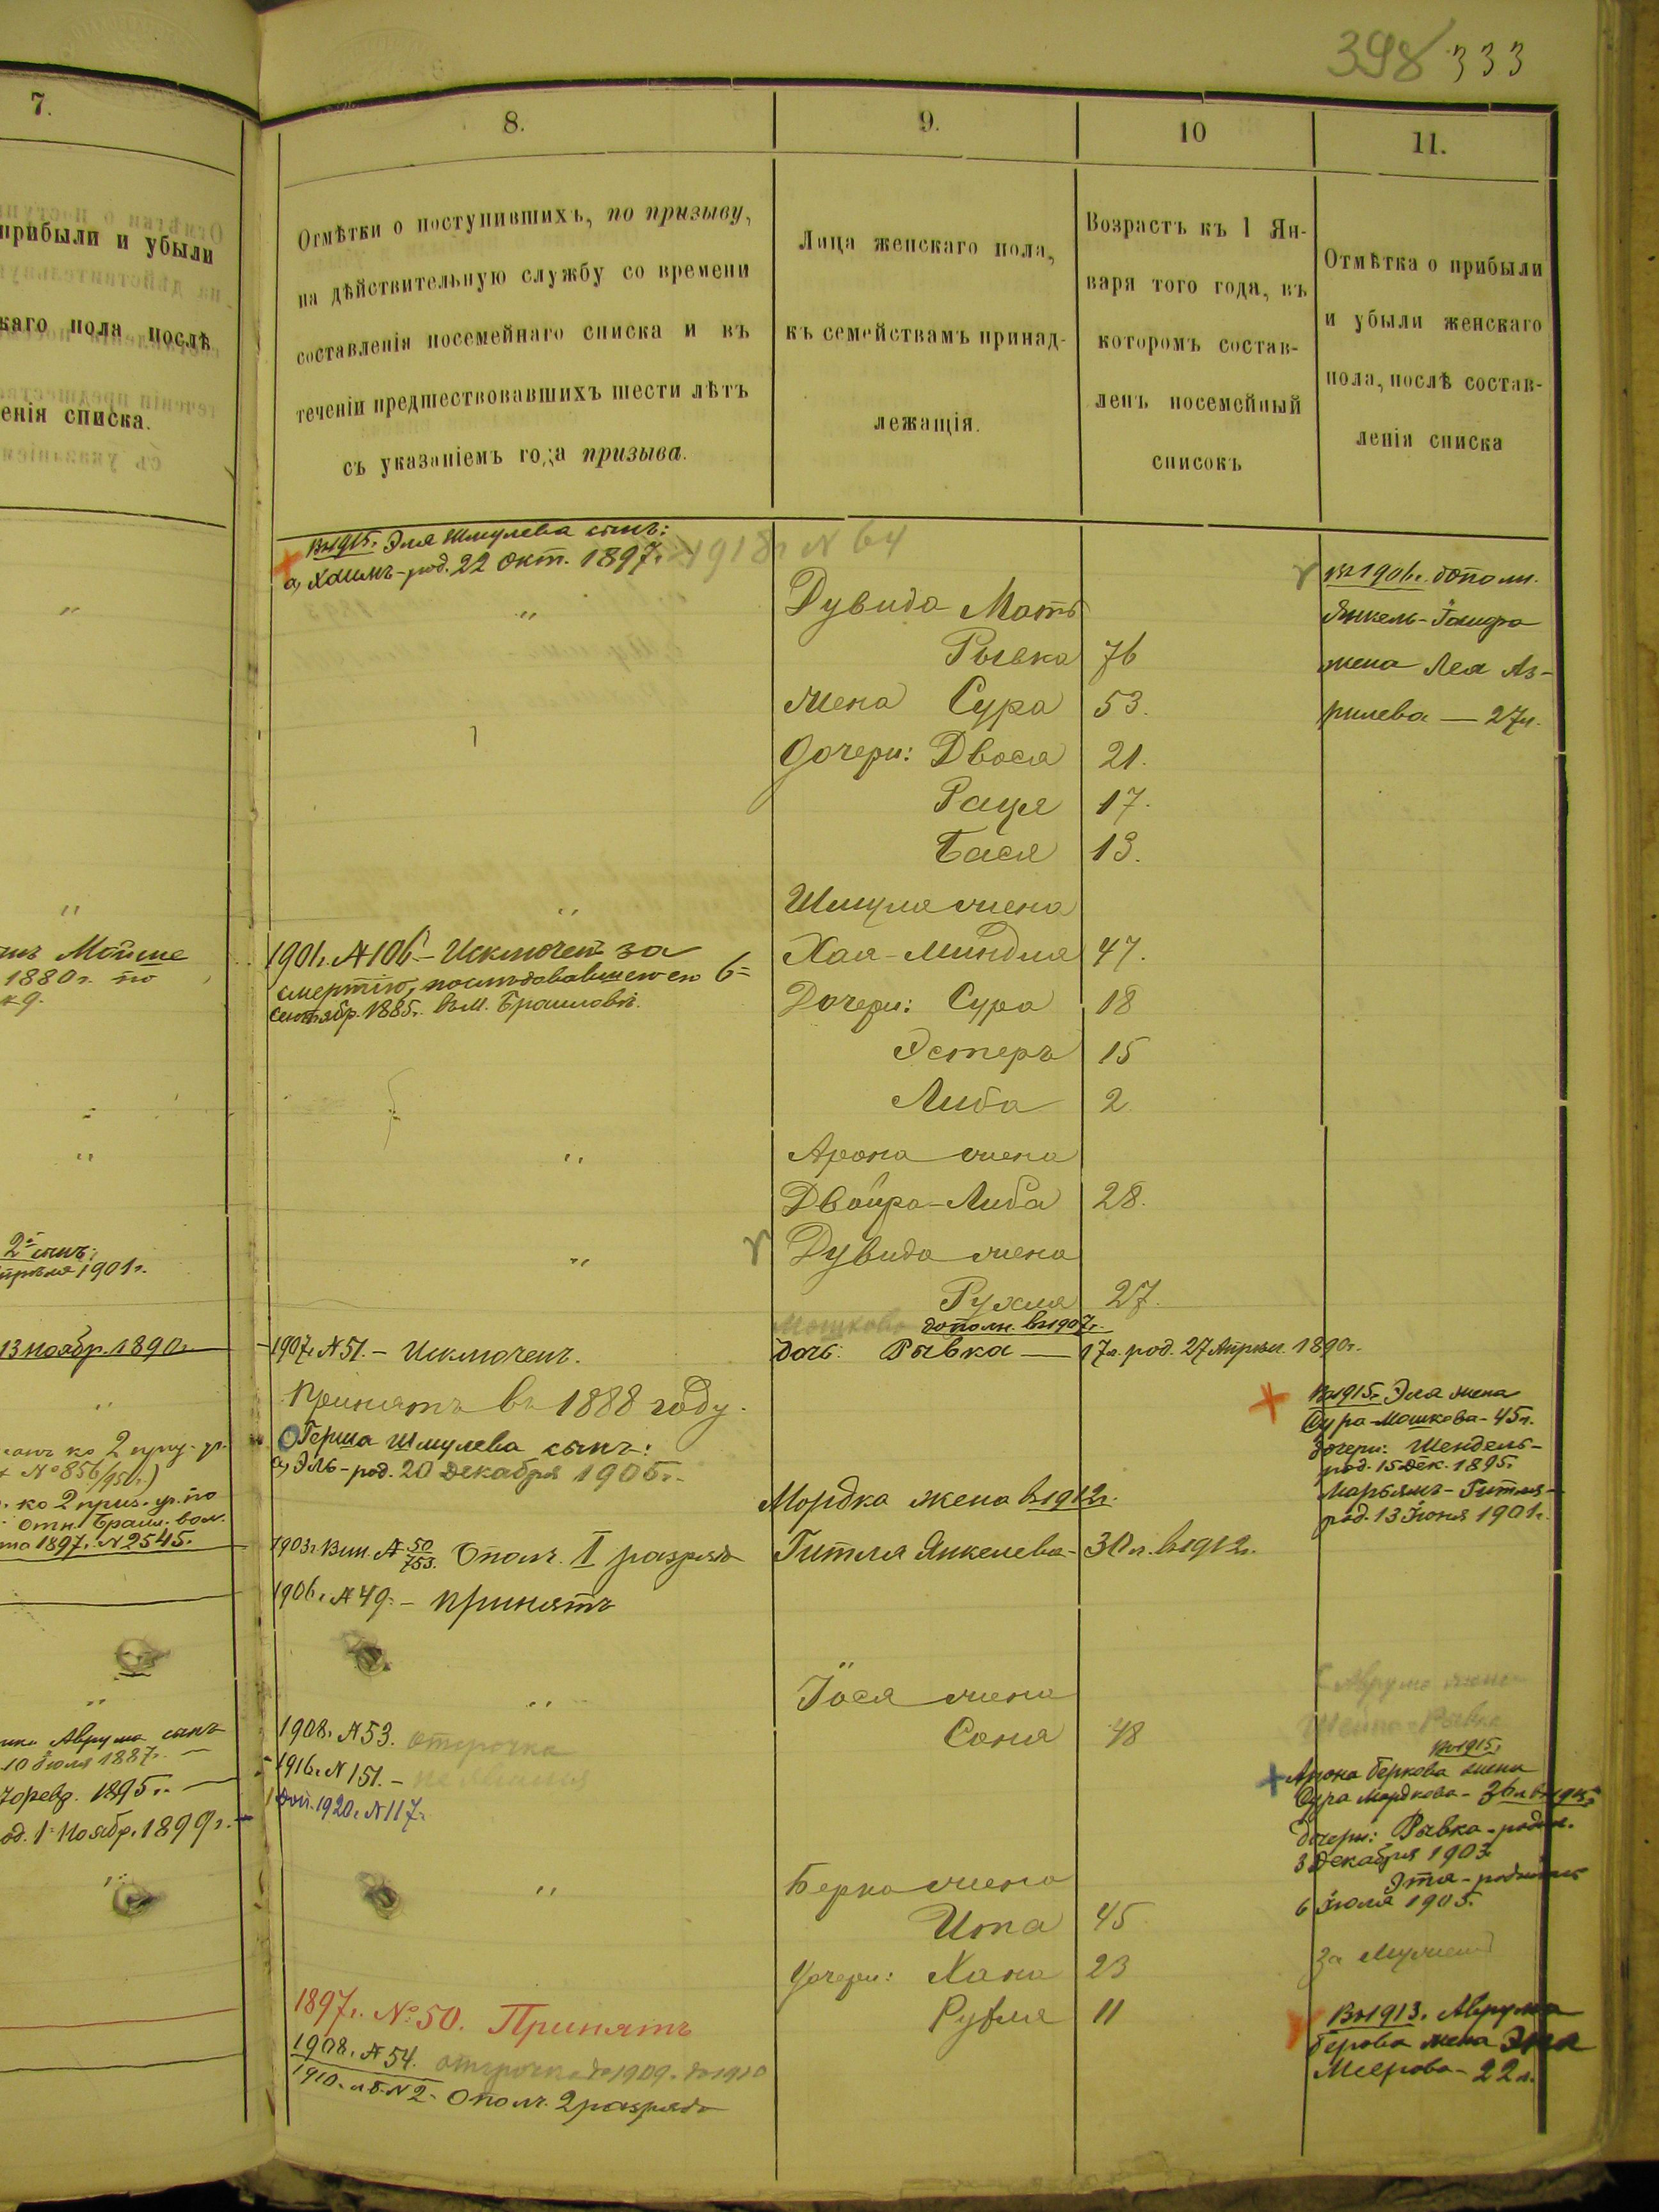 398 333
7.
прибыли и убыли
каго пола послѣ
енія списка.
Мойше
1880 г. по
2й сынъ:
1901 г.
13 ноябр. 1890 г.
ко 2 приз. уч.
№ 856/950 г.)
ко 2 приз. уч. по
отн. Браил. вол.
1897 г. N 2545.
Аврума сынъ
10 Июля 1887 г. —
февр. 1895 г. —
од. 1 Ноябр. 1899 г. —
8.
Отмѣтки о поступившихъ, по призыву,
на дѣйствительную службу со времени
составленія посемейнаго списка и въ
теченіи предшествовавшихъ шести лѣтъ
съ указаніемъ года призыва.
Въ 1915 г. Эля Шмулева сынъ:
а, Хаимъ - род. 22 Окт. 1897 г. 1918 г N 64
1901 г. № 106 - Исключенъ за
смертію, послѣдовавшею 6=
Сентябр. 1885 г. въ м. Браиловѣ.
1907 г. № 51. - Исключенъ.
Принятъ въ 1888 году.
Герша Шмулева сынъ:
а, Эль - род. 20 Декабря 1905 г.
1903 г. Вин. № 50/753. Ополч. I разряда
1906 г. № 49. - принятъ
1908 г. № 53. отсрочка
1916 г. N 151. -
1920 г. N 117.
1897 г. № 50. Принятъ
1908 г. № 54. отсрочка до 1909 г. до 1910
1910 г. N 2. Ополч. 2 разряда
9.
Лица женскаго пола,
къ семействамъ принад-
лежащія.
10
Возрастъ къ 1 Ян-
варя того года, въ
которомъ состав-
ленъ посемейный
списокъ
Дувида Мать
Рывка 76
жена Сура 53.
дочери: Двося 21.
Рация 17.
Бася 13.
Шмуля жена
Хая-Миндля 47.
Дочери: Сура 18
Эстеръ 15
Либа 2
Арона жена
Двойра-Либа 28.
Дувида жена
Рухля 27.
Мошкова дополн. въ 1907 г.
дочь: Рывка — 17 л. род. 27 Апрѣл. 1890 г.
Мордка жена въ 1912 г.
Гитля Янкелева - 30 л. въ 1912 г.
Іося жена
Соня 48
Берка жена
Ита 45
дочери: Хана 23
Рухля 11
11.
Отмѣтка о прибыли
и убыли женскаго
пола, послѣ состав-
ленія списка
въ 1906 г. дополн.
Янкель-
жена Лея Аз-
рилева — 27 л.
Въ 1915 г. Эля жена
Сура Мошкова - 45 л.
дочери: Шендель -
род. 15 Дек. 1895 г.
Марьямъ-Гитля -
род. 13 Іюня 1901 г.
Аврума жена
Шейна-Рывка
въ 1915 г.
Арона Беркова жена
Сура Мордкова - 36 л. въ 1915 г.
дочери: Рывка - родил.
3 Декабря 1903 г.
Эта - родилась
6 Іюля 1905.
За Мужемъ
Въ 1913 г. Аврума
Берова жена Эта
Меерова - 22 л.